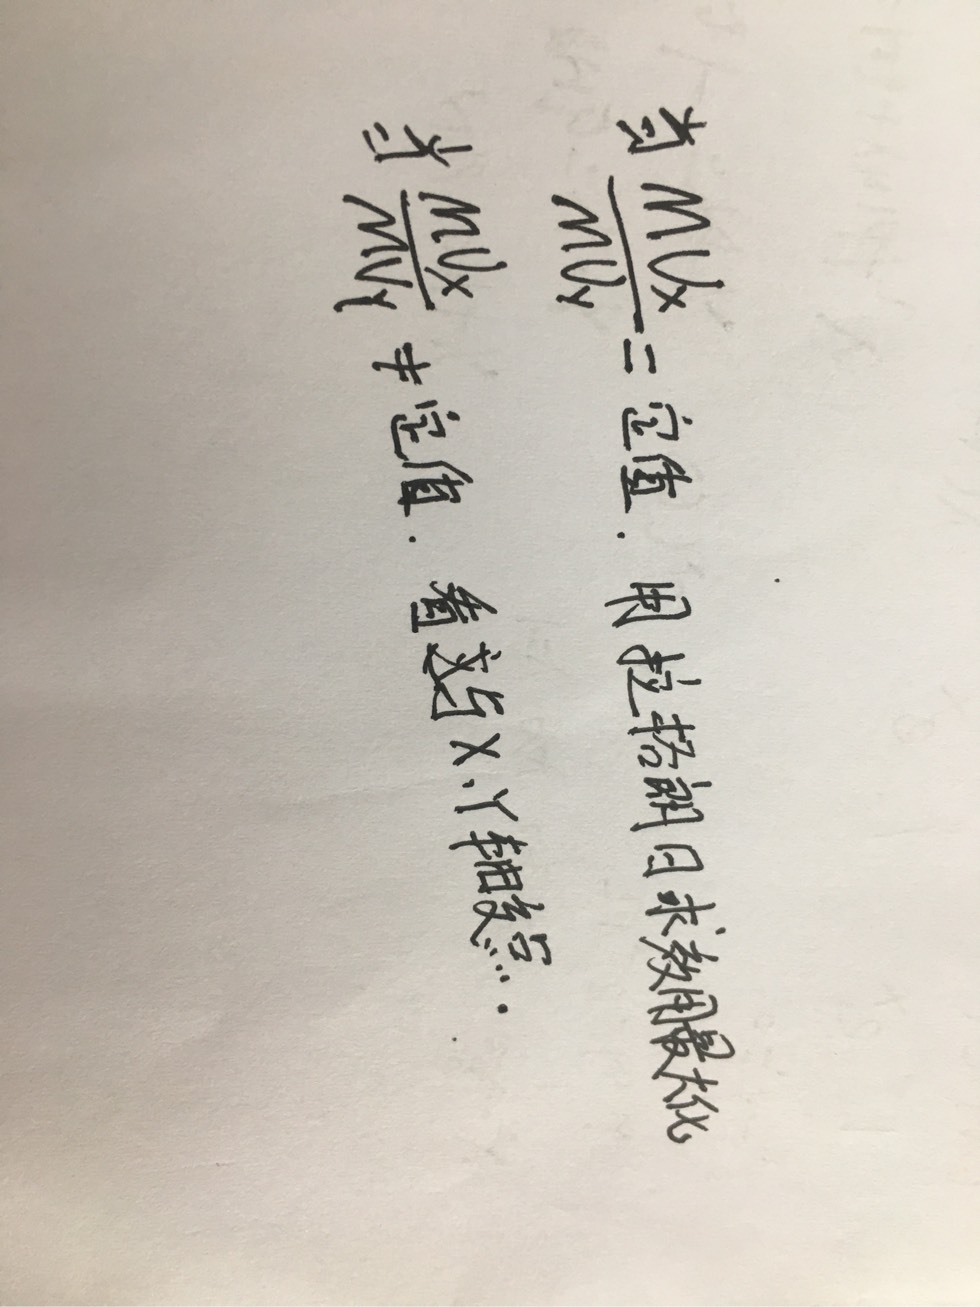 当 MUx/MUy = 定值. 用拉格朗日求效用最大化
当 MUx/MUy ≠ 定值. 看效与X、Y轴交点...